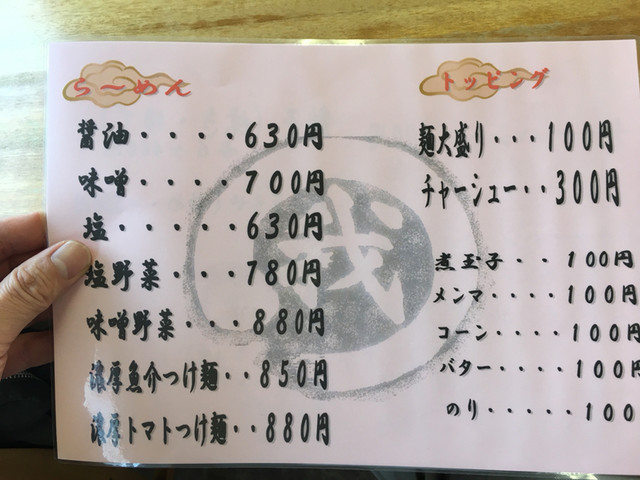 ら〜めん
醤油・・・・630円
味噌・・・・700円
塩・・・・・630円
塩野菜・・・780円
味噌野菜・・・880円
濃厚魚介つけ麺・・850円
濃厚トマトつけ麺・・880円
トッピング
麺大盛り・・・100円
チャーシュー・・300円
煮玉子・・100円
メンマ・・・・100円
コーン・・・・100円
バター・・・・100円
のり・・・・・100
我